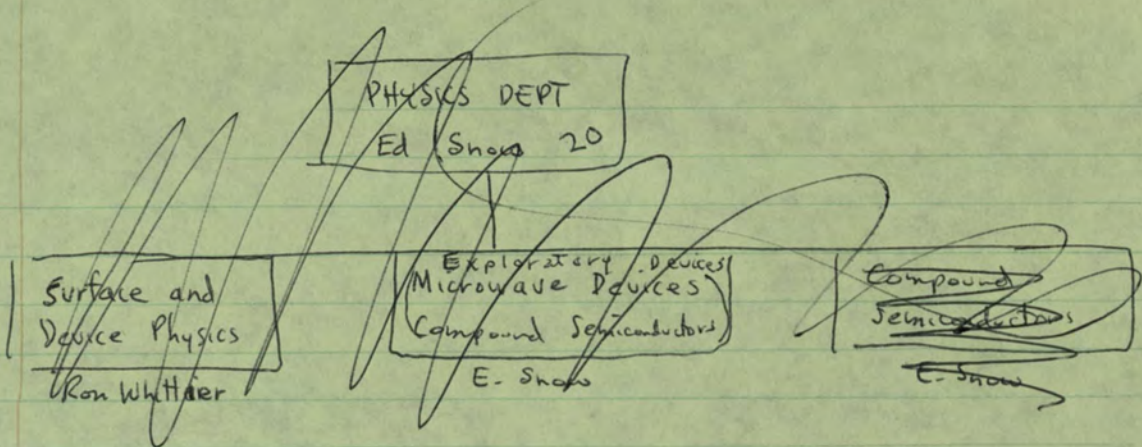 PHYSICS DEPT
Ed Snow 20
Surface and
Device Physics
Ron Whittier
Exploratory Devices
Microwave Devices
Compound Semiconductors
E. Snow
Compound
Semiconductors
E. Snow